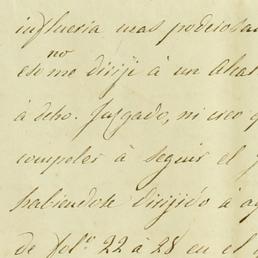 influencia mas poderosa
no
eso me diriji à un Alcal
à dcho. Juzgado, ni creo q
compeler à seguir el
habiendose dirijido à a
de fol.s 22 à 28 en el